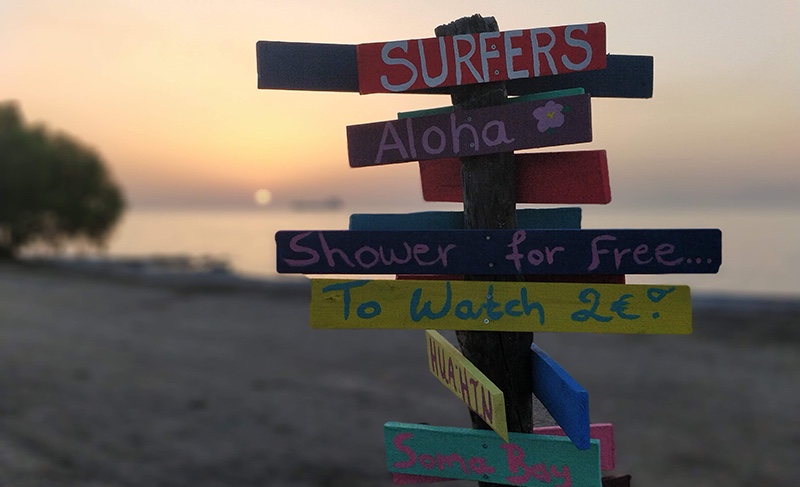 SURFERS
Aloha
Shower for Free...
To Watch 2€!
HUA HIN
Soma Bay